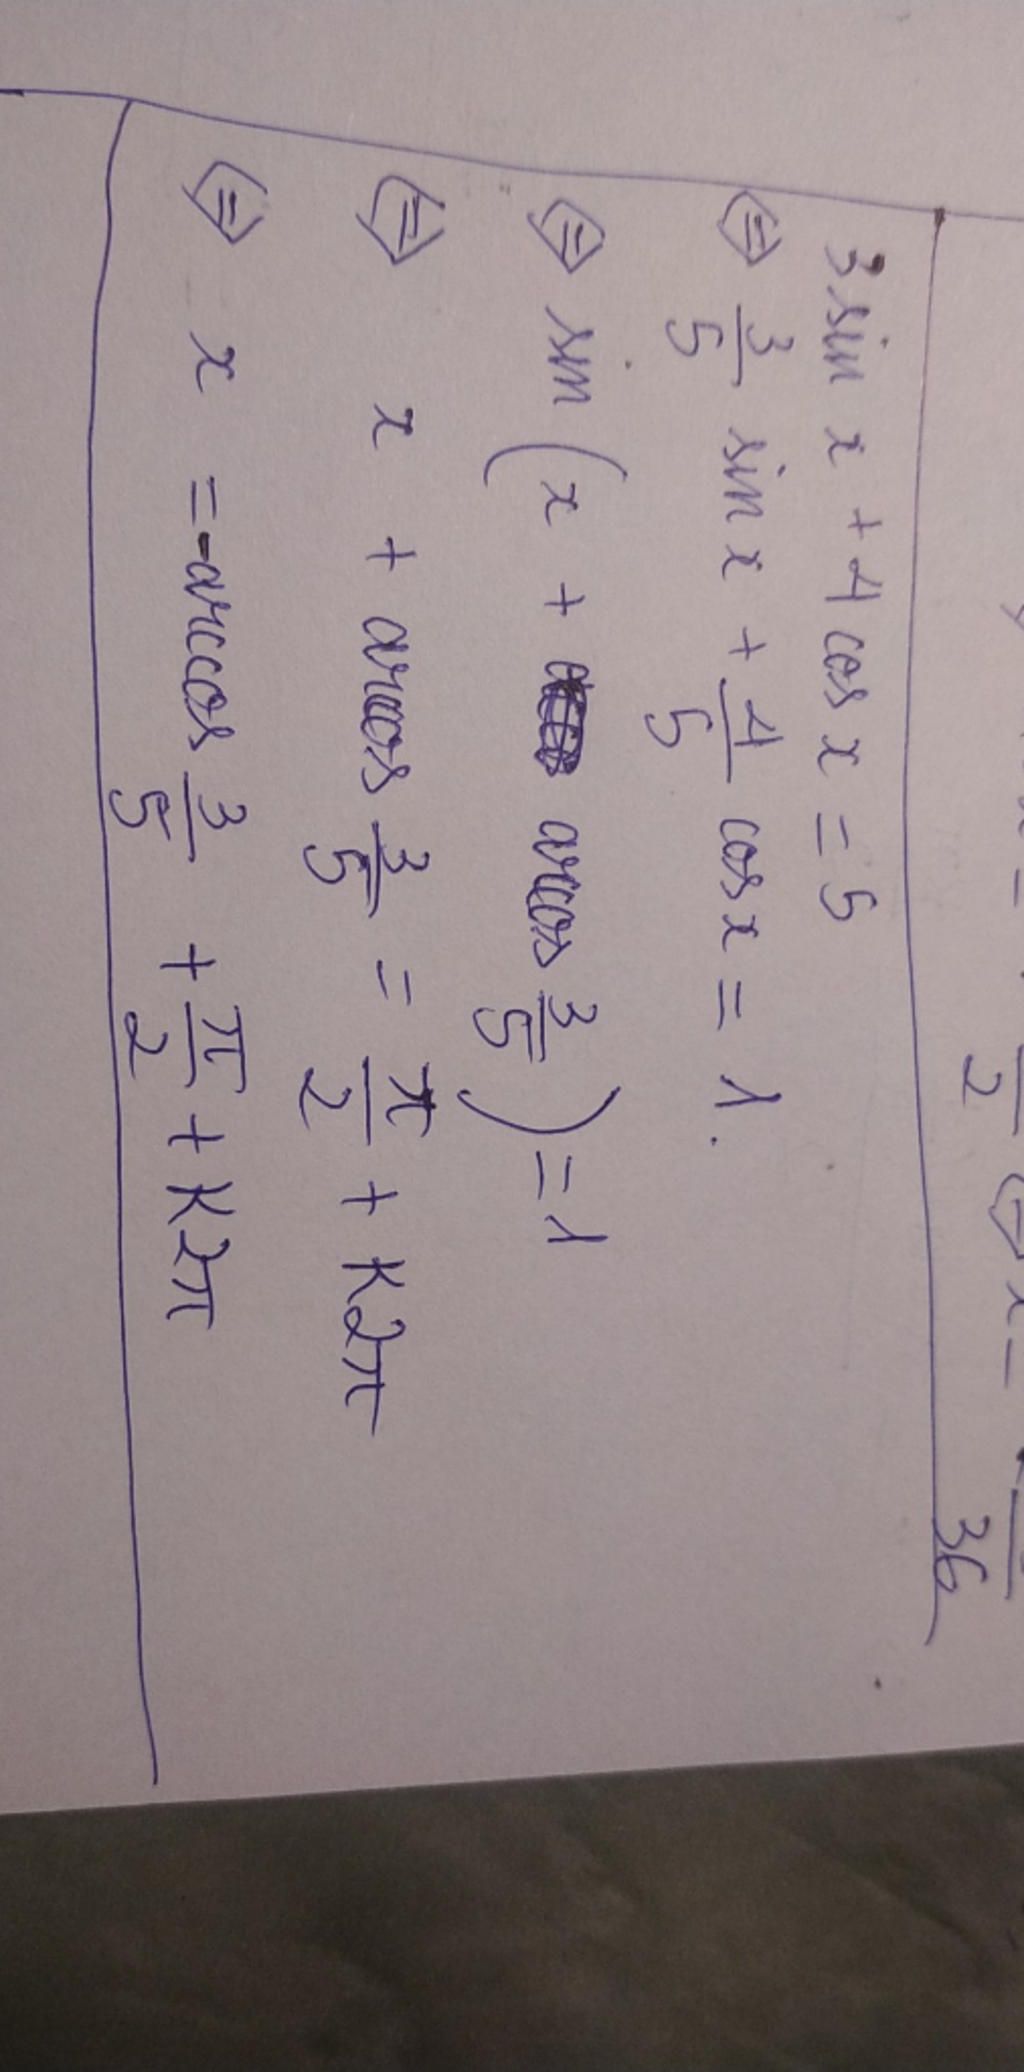 2
36
3 sin x + 4 cos x = 5
⇔ 3/5 sin x + 4/5 cos x = 1.
⇔ sin (x + arccos 3/5) = 1
⇔ x + arccos 3/5 = π/2 + K2π
⇔ x = -arccos 3/5 + π/2 + K2π